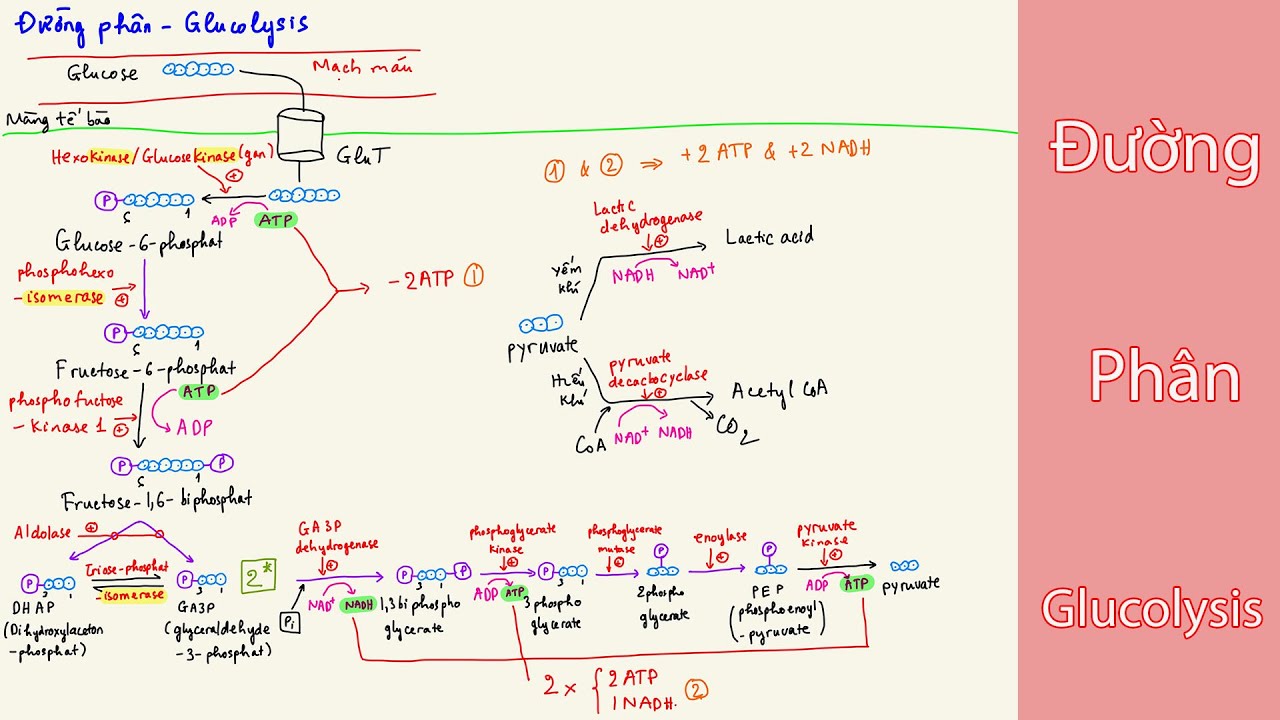 Đường phân - Glucolysis
Glucose
Mạch máu
Màng tế bào
Hexokinase/Glucosekinase(gan)
GluT
+
P
6
1
ADP
ATP
Glucose-6-phosphat
phosphohexo
-isomerase
+
P
6
1
Fructose-6-phosphat
ATP
phosphofuctose
-kinase 1
+
ADP
P
P
6
1
Fructose-1,6-biphosphat
-2ATP ①
① & ② ⇒ +2 ATP & +2 NADH
Lactic
dehydrogenase
+
Lactic acid
yếm
khí
NADH
NAD+
pyruvate
hiếu
khí
pyruvate
decacbocyclase
+
Acetyl CoA
CoA
NAD+
NADH
CO2
Aldolase
+
P
3
DHAP
(Dihydroxylaceton
-phosphat)
Triose-phosphat
isomerase
P
3
GA3P
(glyceraldehyde
-3-phosphat)
2*
GA3P
dehydrogenase
+
Pi
NAD+
NADH
P
3
P
1,3 biphospho
glycerate
phosphoglycerate
kinase
+
ADP
ATP
P
3
3 phospho
glycerate
phosphoglycerate
mutase
+
P
2 phospho
glycerate
enoylase
+
P
PEP
(phosphoenoyl
-pyruvate)
pyruvate
kinase
+
ADP
ATP
pyruvate
2 x { 2 ATP
1 NADH. ②
Đường
Phân
Glucolysis